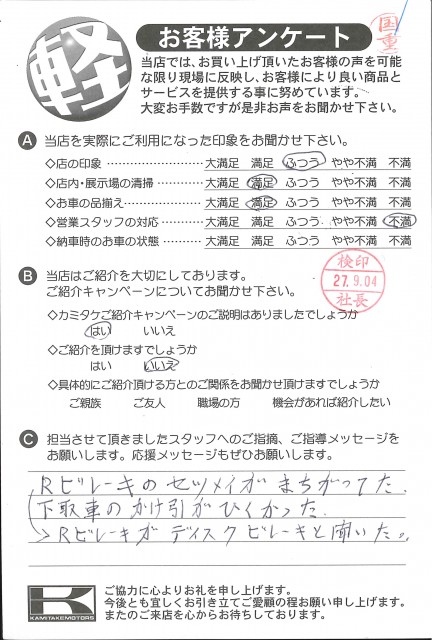 軽
お客様アンケート
国
重
当店では、お買い上げ頂いたお客様の声を可能
な限り現場に反映し、お客様により良い商品と
サービスを提供する事に努めています。
大変お手数ですが是非お声をお聞かせ下さい。
A 当店を実際にご利用になった印象をお聞かせ下さい。
◇店の印象 ………………… 大満足 満足 ふつう やや不満 不満
◇店内・展示場の清掃 ………… 大満足 満足 ふつう やや不満 不満
◇お車の品揃え ……………… 大満足 満足 ふつう やや不満 不満
◇営業スタッフの対応 ………… 大満足 満足 ふつう やや不満 不満
◇納車時のお車の状態 ………… 大満足 満足 ふつう やや不満 不満
B 当店はご紹介を大切にしてあります。
ご紹介キャンペーンについてお聞かせ下さい。
検印
27.9.04
社長
◇カミタケご紹介キャンペーンのご説明はありましたでしょうか
はい いいえ
◇ご紹介を頂けますでしょうか
はい いいえ
◇具体的にご紹介頂ける方とのご関係をお聞かせ頂けますでしょうか
ご親族 ご友人 職場の方 機会があれば紹介したい
C 担当させて頂きましたスタッフへのご指摘、ご指導メッセージを
お願いします。応援メッセージもぜひお願いします。
Rビレーキのセツメイがまちがってた.
下取車のかけ引がひくかった.
>Rビレーキがディスクビレーキと聞いた。
K
KAMITAKEMOTORS
ご協力に心よりお礼を申し上げます。
今後とも宜しくお引き立てご愛顧の程お願い申し上げます。
またのご来店を心からお待ちしております。